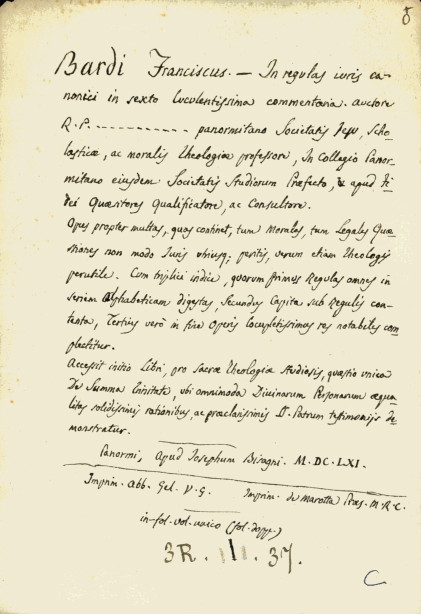 8
Bardi Franciscus. — In regulas iuris ca-
nonici in sexto luculentissima commentaria. auctore
R. P. ------------ panormitano Societatis Jesu, Scho-
lasticæ, ac moralis theologiæ professore, In Collegio Panor-
mitano eiusdem Societatis Studiorum Præfecto, & apud fi-
dei Quæsitores Qualificatore, ac Consultore.
Opus propter multas, quas continet, tum Morales, tum Legales Quæ-
stiones non modo Iuris utriusq; peritis, verum etiam theologis
perutile. Cum triplici indice, quorum primus Regulas omnes in
seriem Alphabeticam digestas, Secundus Capita sub Regulis con-
tenta, Tertius verò in fine Operis locupletissimus res notabiles com
plectitur.
Accessit initio Libri, pro Sacræ theologiæ studiosis, quæstio unica
De Summa trinitate, ubi omnimoda Divinarum Personarum æqua-
litas solidissimis rationibus, ac præclarissimis SS. Patrum testimonijs de
monstratur.
Panormi, Apud Josephum Bisagni. M.DC.LXI.
Imprim. Abb. Gel. V. G. Imprim. de Marotta Præs. M.R.C.
in-fol. vol. unico (fol. dopp.)
3R. III. 37.
C